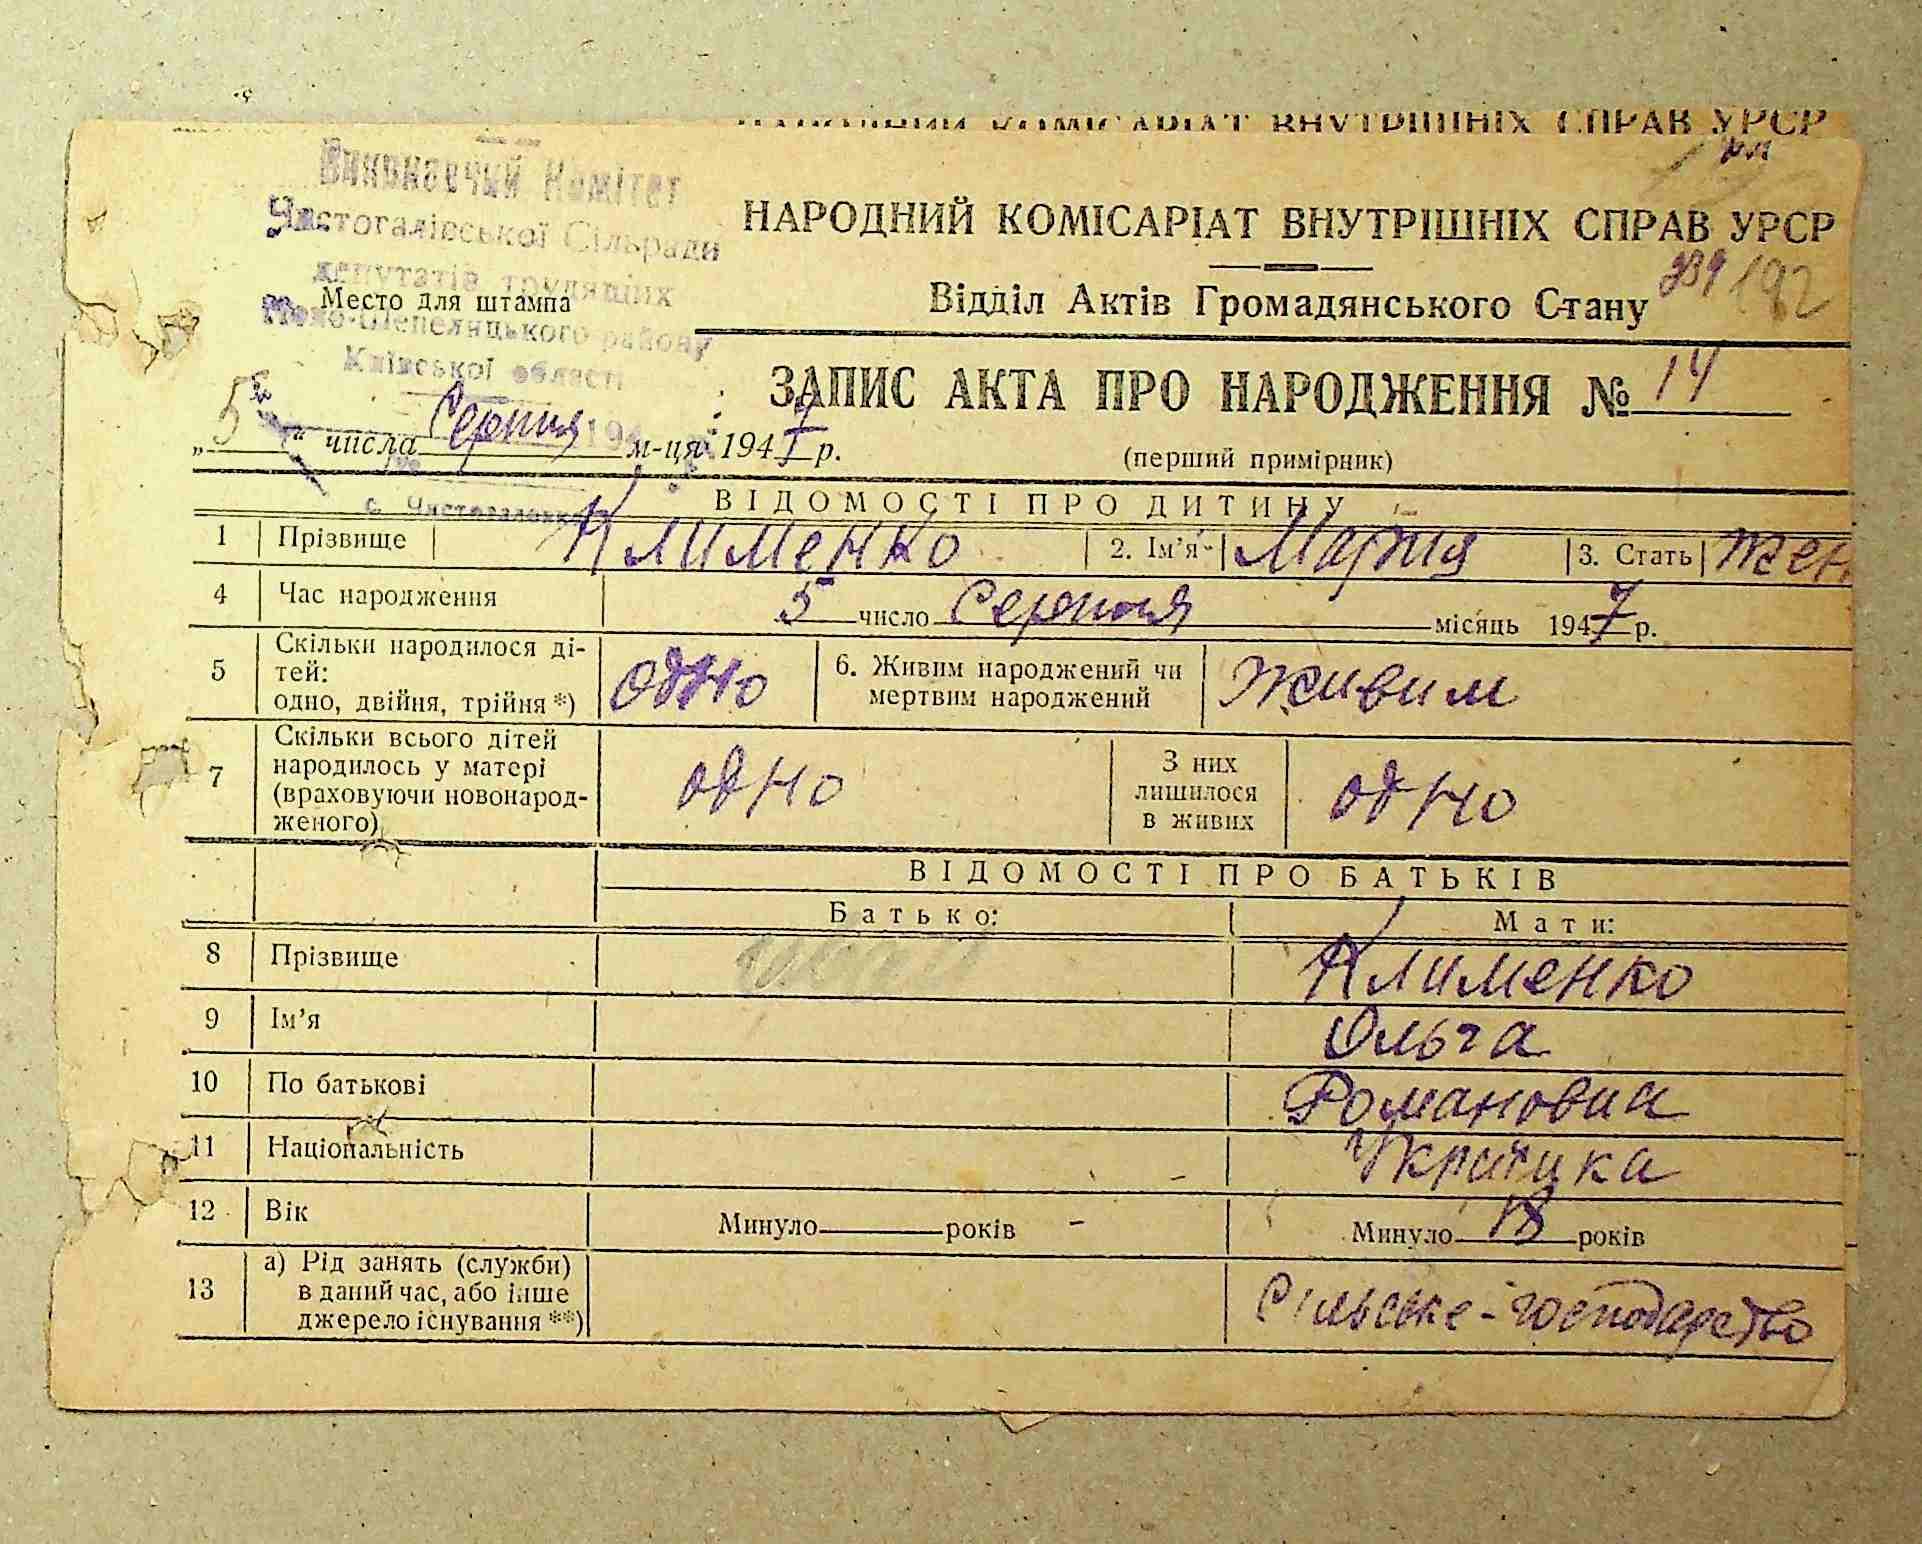 НАРОДНИЙ КОМІСАРІАТ ВНУТРІШНІХ СПРАВ УРСР
Виконавчий Комітет
Чистогалівської Сільради
депутатів трудящих
Ново-Шепелицького району
Київської області
194
с. Чистогалівка
Место для штампа
НАРОДНИЙ КОМІСАРІАТ ВНУТРІШНІХ СПРАВ УРСР
Відділ Актів Громадянського Стану
239 192
ЗАПИС АКТА ПРО НАРОДЖЕННЯ № 14
„5“ числа Серпня м-ця 1947 р.
(перший примірник)
ВІДОМОСТІ ПРО ДИТИНУ
1 Прізвище Клименко 2. Ім’я Мария 3. Стать жен
4 Час народження 5 число Серпня місяць 1947 р.
5 Скільки народилося ді-
тей:
одно, двійня, трійня *) одно
6. Живим народжений чи
мертвим народжений живим
7 Скільки всього дітей
народилось у матері
(враховуючи новонарод-
женого) одно
З них
лишилося
в живих одно
ВІДОМОСТІ ПРО БАТЬКІВ
Батько: Мати:
8 Прізвище Клименко
9 Ім’я Ольга
10 По батькові Романовна
11 Національність Українка
12 Вік Минуло років Минуло 18 років
13 а) Рід занять (служби)
в даний час, або інше
джерело існування **) сільське-господарство